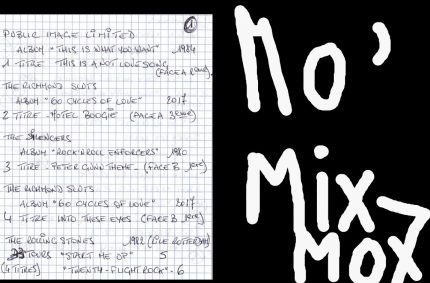 1
PUBLIC IMAGE LIMITED
ALBUM "THIS IS WHAT YOU WANT" 1984
1 TITRE THIS IS A NOT LOVE SONG
(FACE A 2ème)
THE RICHMOND SLUTS
ALBUM "60 CYCLES OF LOVE" 2017
2 TITRE - MOTEL BOOGIE (FACE A 3ème)
THE SILENCERS
ALBUM "ROCK'N ROLL ENFORCERS" 1980
3 TITRE - PETER GUNN THEME - (FACE B 1ère)
THE RICHMOND SLUTS
ALBUM "60 CYCLES OF LOVE" 2017
4 TITRE INTO THESE EYES (FACE B 1ère)
THE ROLLING STONES 1982 (LIVE ROTTERDAM)
TOURS "START ME UP" 5
(4 TITRES) "TWENTY-FLIGHT ROCK" - 6
Mo'
Mix
Mox